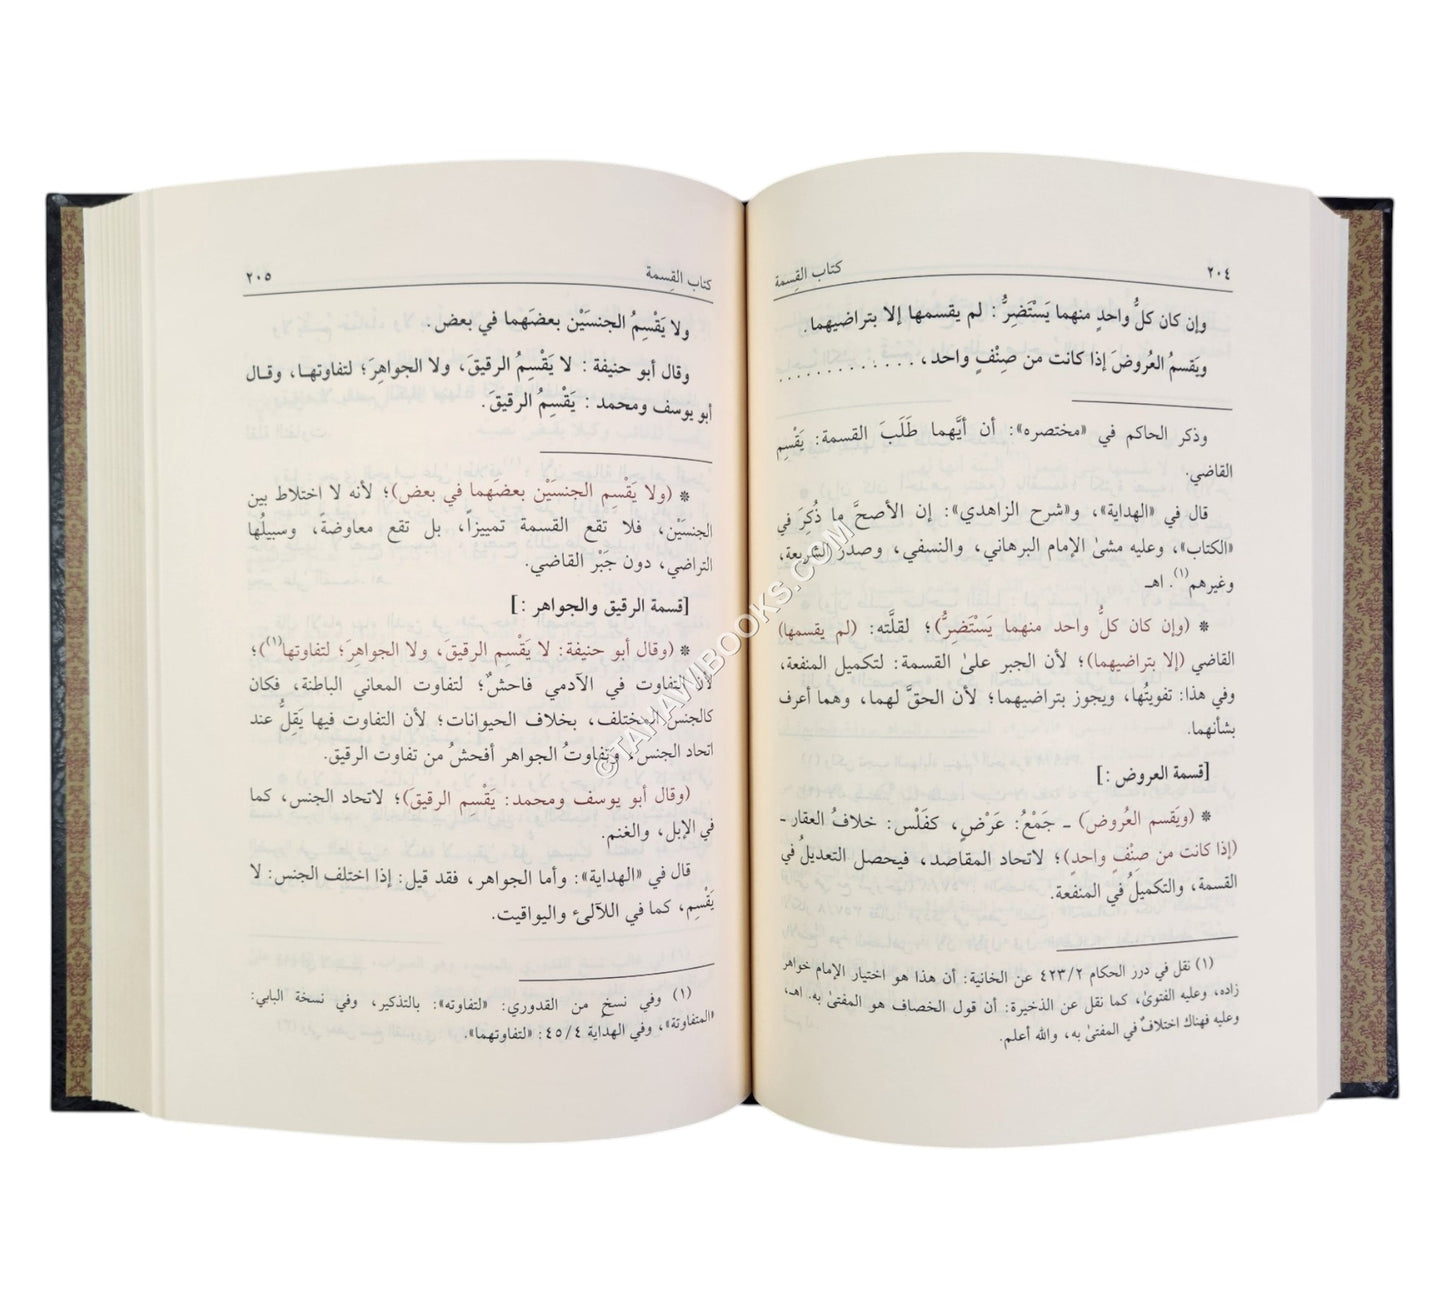 ٢٠٤
كتاب القِسمة
وإن كان كلُّ واحدٍ منهما يَسْتَضِرُّ : لم يقسمها إلا بتراضيهما.
ويَقسمُ العُروضَ إذا كانت من صِنْفٍ واحد، . . . . . . . . . . . . .
وذكر الحاكم في «مختصره»: أن أيَّهما طَلَبَ القسمة: يَقْسِم
القاضي.
قال في «الهداية»، و«شرح الزاهدي»: إن الأصحَّ ما ذُكِرَ في
«الكتاب»، وعليه مشىٰ الإمام البرهاني، والنسفي، وصدرُ الشريعة،
وغيرهم(١). اهـ
* (وإن كان كلُّ واحد منهما يَسْتَضِرُّ)؛ لقلَّته: (لم يقسمها)
القاضي (إلا بتراضيهما)؛ لأن الجبر علىٰ القسمة: لتكميل المنفعة،
وفي هذا: تفويتُها، ويجوز بتراضيهما؛ لأن الحقَّ لهما، وهما أعرف
بشأنهما.
[قسمة العروض :]
* (ويَقسم العُروض) ـ جَمْعُ: عَرْضٍ، كفَلْس: خلافُ العقار ـ
(إذا كانت من صنْفٍ واحدٍ)؛ لاتحاد المقاصد، فيحصل التعديلُ في
القسمة، والتكميلُ في المنفعة.
(١) نقل في درر الحكام ٤٢٣/٢ عن الخانية: أن هذا هو اختيار الإمام خواهر
زاده، وعليه الفتوىٰ، كما نقل عن الذخيرة: أن قول الخصاف هو المفتىٰ به. اهـ،
وعليه فهناك اختلافٌ في المفتىٰ به، والله أعلم.
كتاب القِسمة
٢٠٥
ولا يَقْسِمُ الجنسَيْن بعضَهما في بعض.
وقال أبو حنيفة : لا يَقْسِمُ الرقيقَ، ولا الجواهِرَ؛ لتفاوتها، وقال
أبو يوسف ومحمد : يَقْسِمُ الرقيقَ.
* (ولا يَقْسِم الجنسَيْن بعضَهما في بعض)؛ لأنه لا اختلاط بين
الجنسَيْن، فلا تقع القسمة تمييزاً، بل تقع معاوضةً، وسبيلُها
التراضي، دون جَبْر القاضي.
[قسمة الرقيق والجواهر :]
* (وقال أبو حنيفة: لا يَقْسِم الرقيقَ، ولا الجواهرَ؛ لتفاوتها(١))؛
لأن التفاوت في الآدمي فاحشٌ؛ لتفاوت المعاني الباطنة، فكان
كالجنس المختلف، بخلاف الحيوانات؛ لأن التفاوت فيها يَقِلُّ عند
اتحاد الجنس، وتفاوتُ الجواهر أفحشُ من تفاوت الرقيق.
(وقال أبو يوسف ومحمد: يَقْسِم الرقيقَ)؛ لاتحاد الجنس، كما
في الإبل، والغنم.
قال في «الهداية»: وأما الجواهر، فقد قيل: إذا اختلف الجنس: لا
يَقْسِم، كما في اللآلىء واليواقيت.
(١) وفي نسخ من القدوري: «لتفاوته»: بالتذكير، وفي نسخة البابي:
«المتفاوتة»، وفي الهداية ٤٥/٤: «لتفاوتهما».
© TAMAWIBOOKS.COM